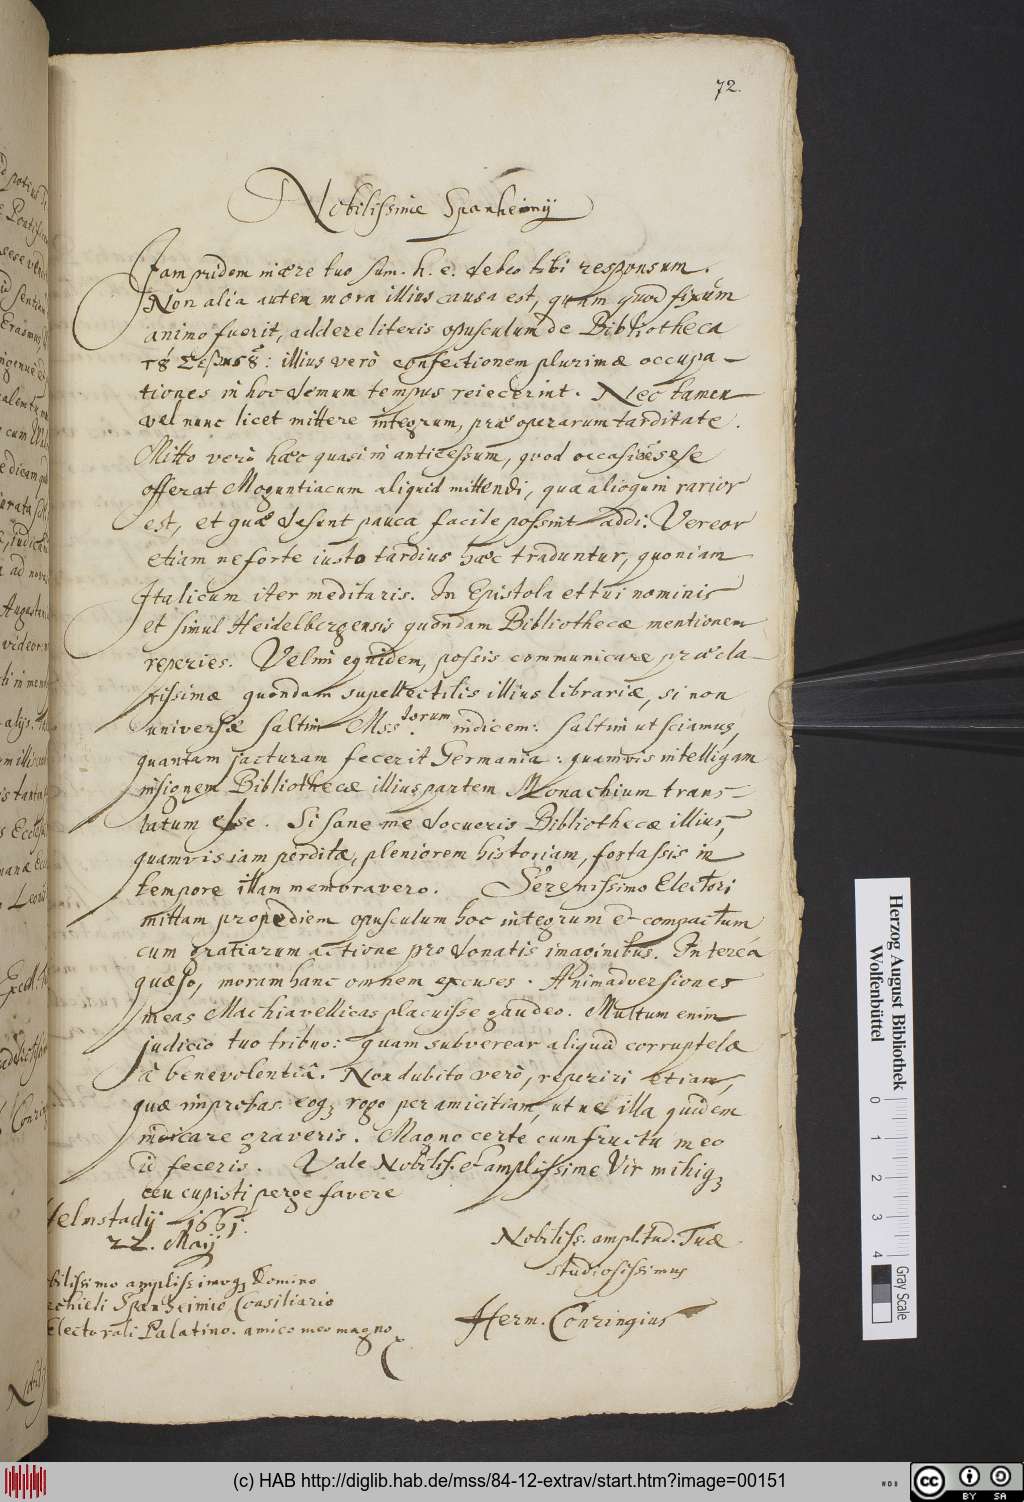 72.
Nobilissime Spanhemij
Jam pridem in ære tuo sum. h. e. debeo tibi responsum.
Non alia autem mora illius causa est, quam quod fixum
animo fuerit, addere literis opusculum de Bibliotheca
illius verò confectionem plurimæ occupa-
tiones in hoc demum tempus reiecerint. Nec tamen
vel nunc licet mittere integrum, præ operarum tarditate.
Mitto verò hæc quasi in antecessum, quod occasio sese
offerat Moguntiacum aliquid mittendi, quæ alioquin rarior
est, et quæ desunt pauca facile possint addi. Vereor
etiam ne forte iusto tardius hæc tradantur, quoniam
Italicum iter meditaris. In Epistola et tui nominis
et simul Heidelbergensis quondam Bibliothecæ mentionem
reperies. Velim equidem, possis communicare præcla-
rissimæ quondam supellectilis illius librariæ, si non
universæ saltim Mss.torum indicem: saltim ut sciamus,
quantam jacturam fecerit Germania: quamvis intelligam
insignem Bibliothecæ illius partem Monachium trans-
latum esse. Si sane me docueris Bibliothecæ illius,
quamvis iam perditæ, pleniorem historiam, fortassis in
tempore illam memoravero. Serenissimo Electori
mittam propediem opusculum hoc integrum & compactum
cum gratiarum actione pro donatis imaginibus. Interea
quæso, moram hanc omnem excuses. Animadversiones
meas Machiavellicas placuisse gaudeo. Multum enim
judicio tuo tribuo: quam subverear aliquid corruptelæ
à benevolentiâ. Non dubito verò, reperiri etiam,
quæ improbas. eoq; rogo per amicitiam, ut ne illa quidem
indicare graveris. Magno certe cum fructu meo
id feceris. Vale Nobiliss. et amplissime Vir mihiq;
ceu cupisti perge favere
Helmstadij 1661.
22. Maij
Nobiliss. amplitud. Tuæ
studiosissimus
Herm. Conringius
bilissimo amplissimoq; Domino
echieli Spanheimio Consiliario
Electorali Palatino. amico meo magno
Herzog August Bibliothek
Wolfenbüttel
0 1 2 3 4
Gray Scale
(c) HAB http://diglib.hab.de/mss/84-12-extrav/start.htm?image=00151
WDB
cc BY SA